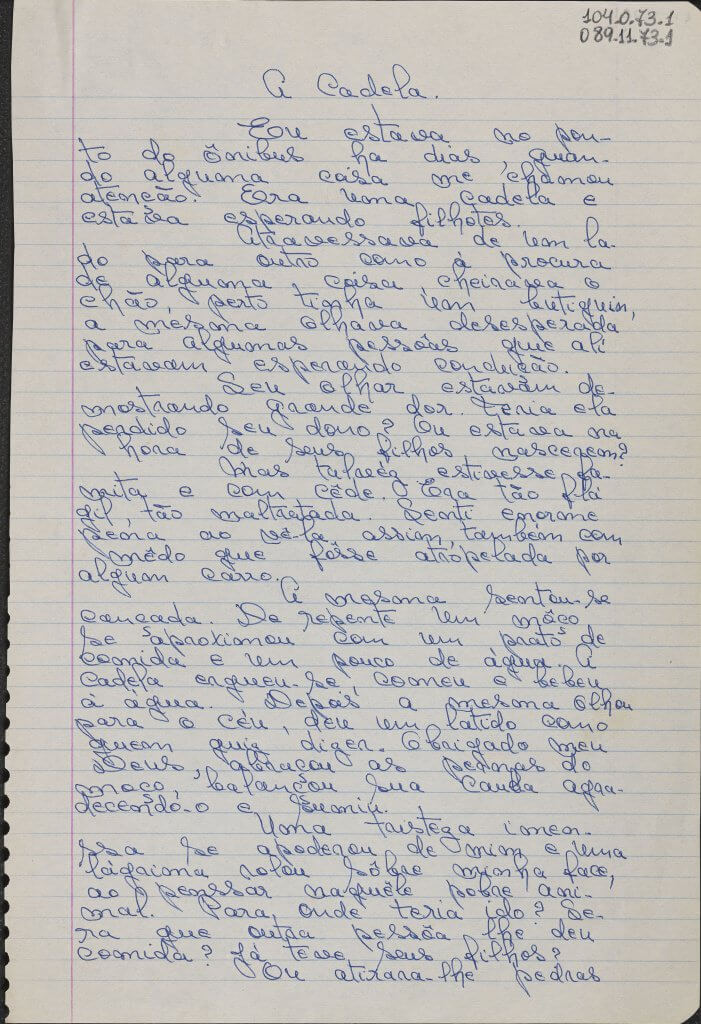 104.0.73.1
089.11.73-1
A Cadela.
Eu estava no pon-
to do ônibus ha dias, quan-
do alguma coisa me chamou
atencão. Era uma cadela e
estava esperando filhotes.
Atravessava de um la-
do para outro como à procura
de alguma coisa cheirava o
chão, perto tinha um butiguin,
a mesma olhava desesperada
para algumas pessôas que ali
estavam esperando condução.
Seu olhar estavam de-
mostrando grande dor. Teria ela
perdido seu dono? Ou estava na
hora de seus filhos nascerem?
Mas talvêz estivesse fa-
mita e com cêde. Era tão fla
gil, tão maltratada. Senti enorme
pena ao vê-la assim, também com
mêdo que fôsse atropelada por
algum carro.
A mesma sentou-se
cancada. De repente um môco
se aproximou com um prato de
comida e um pouco de água. A
cadela ergueu-se, comeu e bebeu
à água. Depois a mesma olhou
para o céu, deu um latido como
quem quiz dizer. Obrigado meu
Deus, abraçou as pernas do
moco, balançou sua cauda agra-
decendo-o e sumiu.
Uma tristeza imen-
ssa se apoderou de mim e uma
lágrima rolou sôbre minha face,
ao penssar naquêle pobre ani-
mal. Para onde teria ido? Se-
ra que outra pessôa lhe deu
comida? Já teve seus filhos?
Ou atirara-lhe pedras